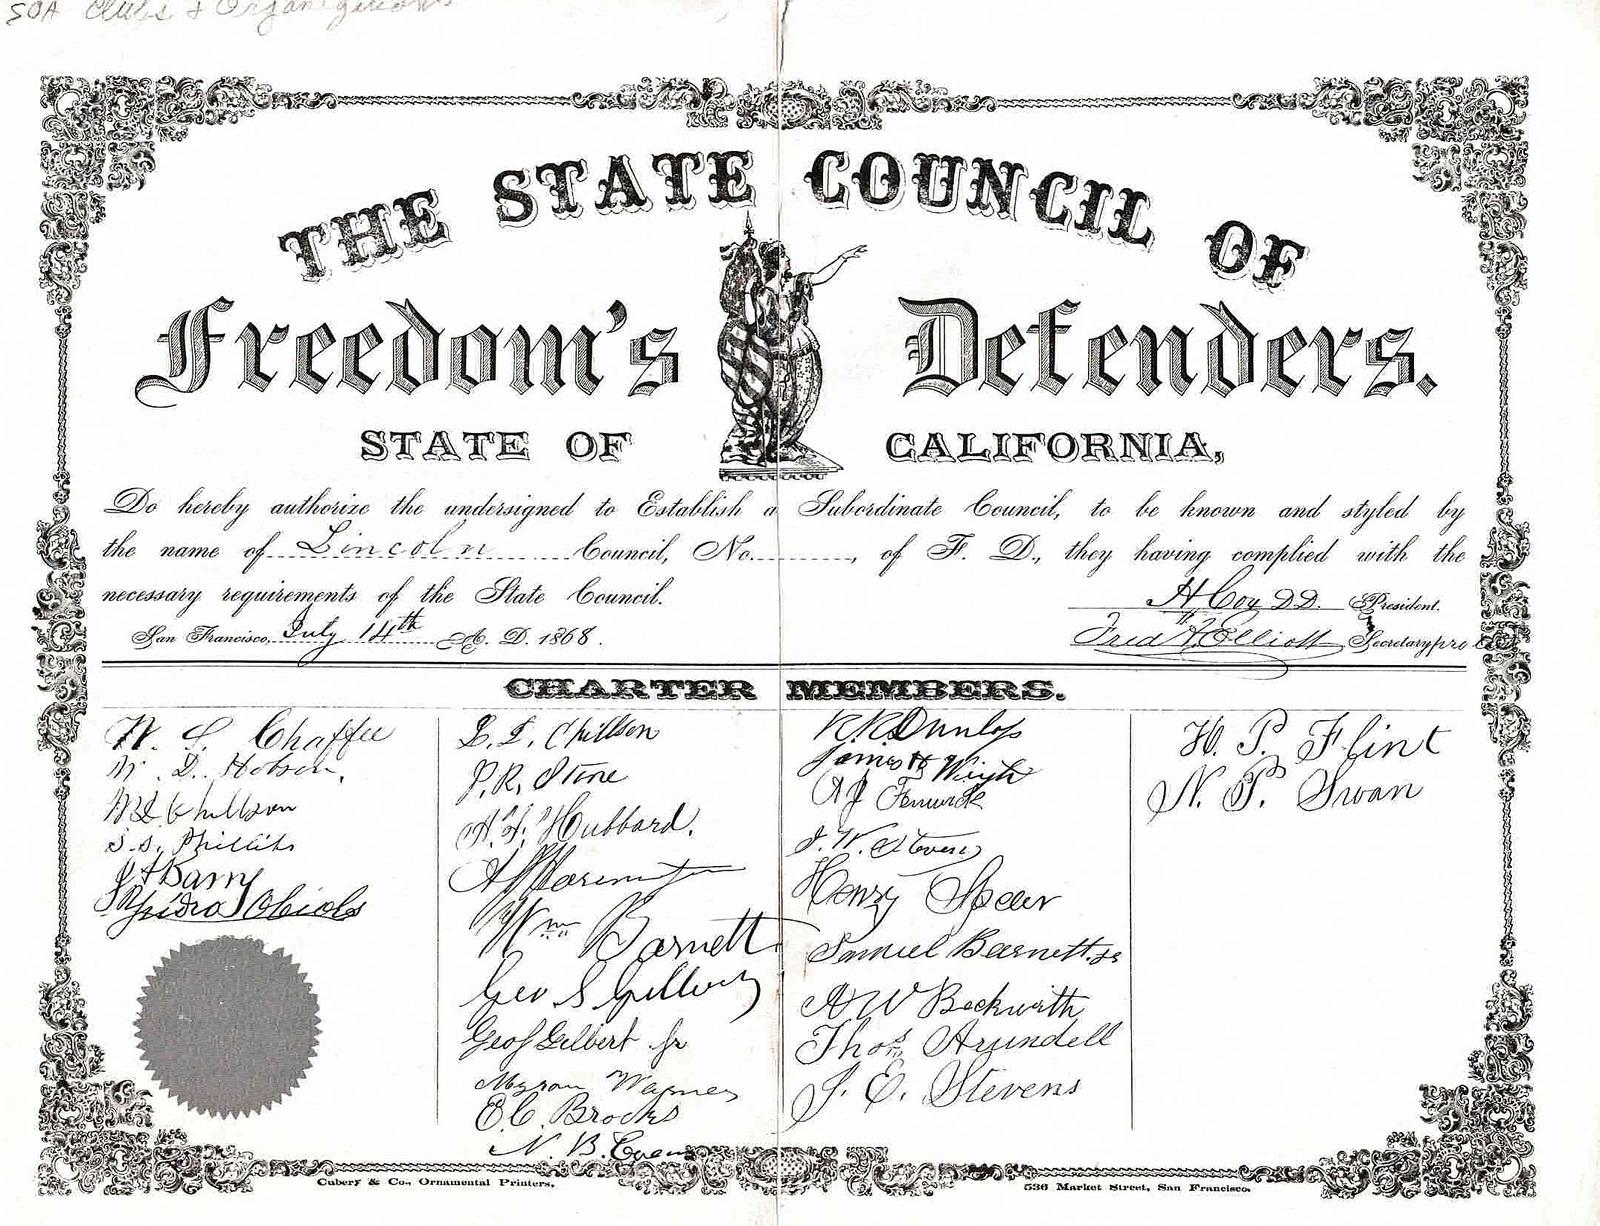 SOA Clubs & Organizations
THE STATE COUNCIL OF
Freedom's Defenders.
STATE OF CALIFORNIA,
Do hereby authorize the undersigned to Establish a Subordinate Council, to be known and styled by
the name of Lincoln Council, No. , of F. D., they having complied with the
necessary requirements of the State Council.
H Coy DD. President.
San Francisco, July 14th A. D. 1868.
Fred A. Elliott Secretary pro
CHARTER MEMBERS.
W. S. Chaffee
W. D. Hobson.
W D Chillson
S. S. Phillips
Barry
Ysidro Obiols
L. D. Chillson
J. R. Stone
Hubbard.
Wm Barnett
Geo S Gilbert
Geo S Gilbert Jr
Myron Wagner
E. C. Brooks
N. B.
R. R. Dunlop
James H
A J Fenwick
J. W. Stevens
Henry Speer
Samuel Barnett. Jr
A W Beckwith
Thos Arundell
J. E. Stevens
H. P. Flint
N. P. Swan
Cubery & Co., Ornamental Printers,
536 Market Street, San Francisco.